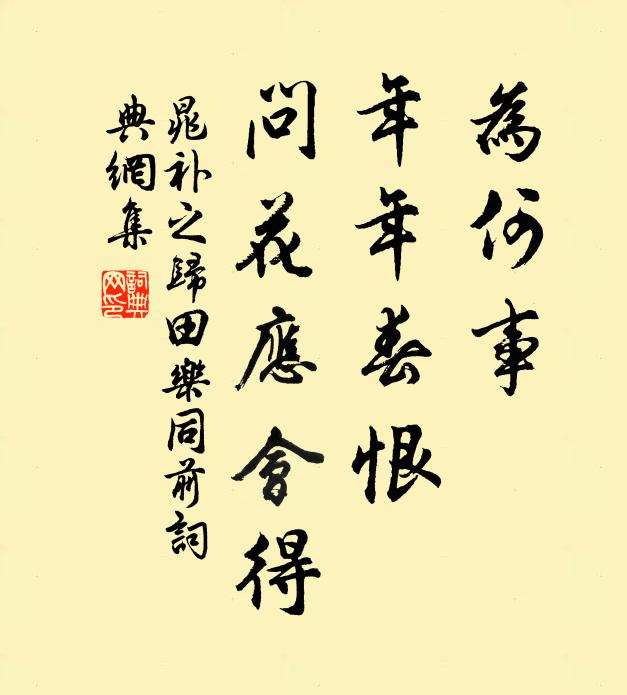 為何事
年年春恨
問花應會得
晁补之歸田樂同前詞
典網集
詞典網印